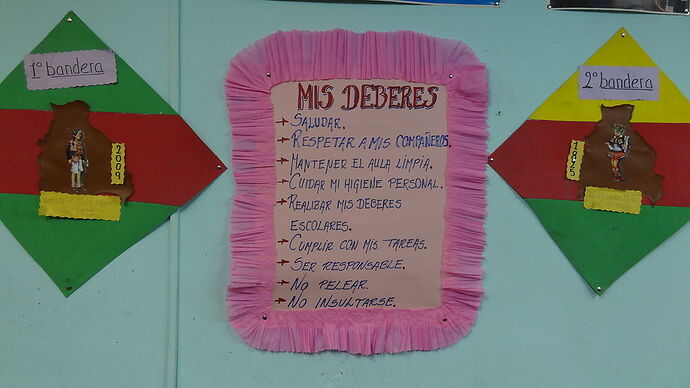 1º bandera
2009
MIS DEBERES
SALUDAR.
RESPETAR A MIS COMPAÑEROS.
MANTENER EL AULA LIMPIA.
CUIDAR MI HIGIENE PERSONAL.
REALIZAR MIS DEBERES
ESCOLARES.
CUMPLIR CON MIS TAREAS.
SER RESPONSABLE.
NO PELEAR.
NO INSULTARSE.
2º bandera
1825